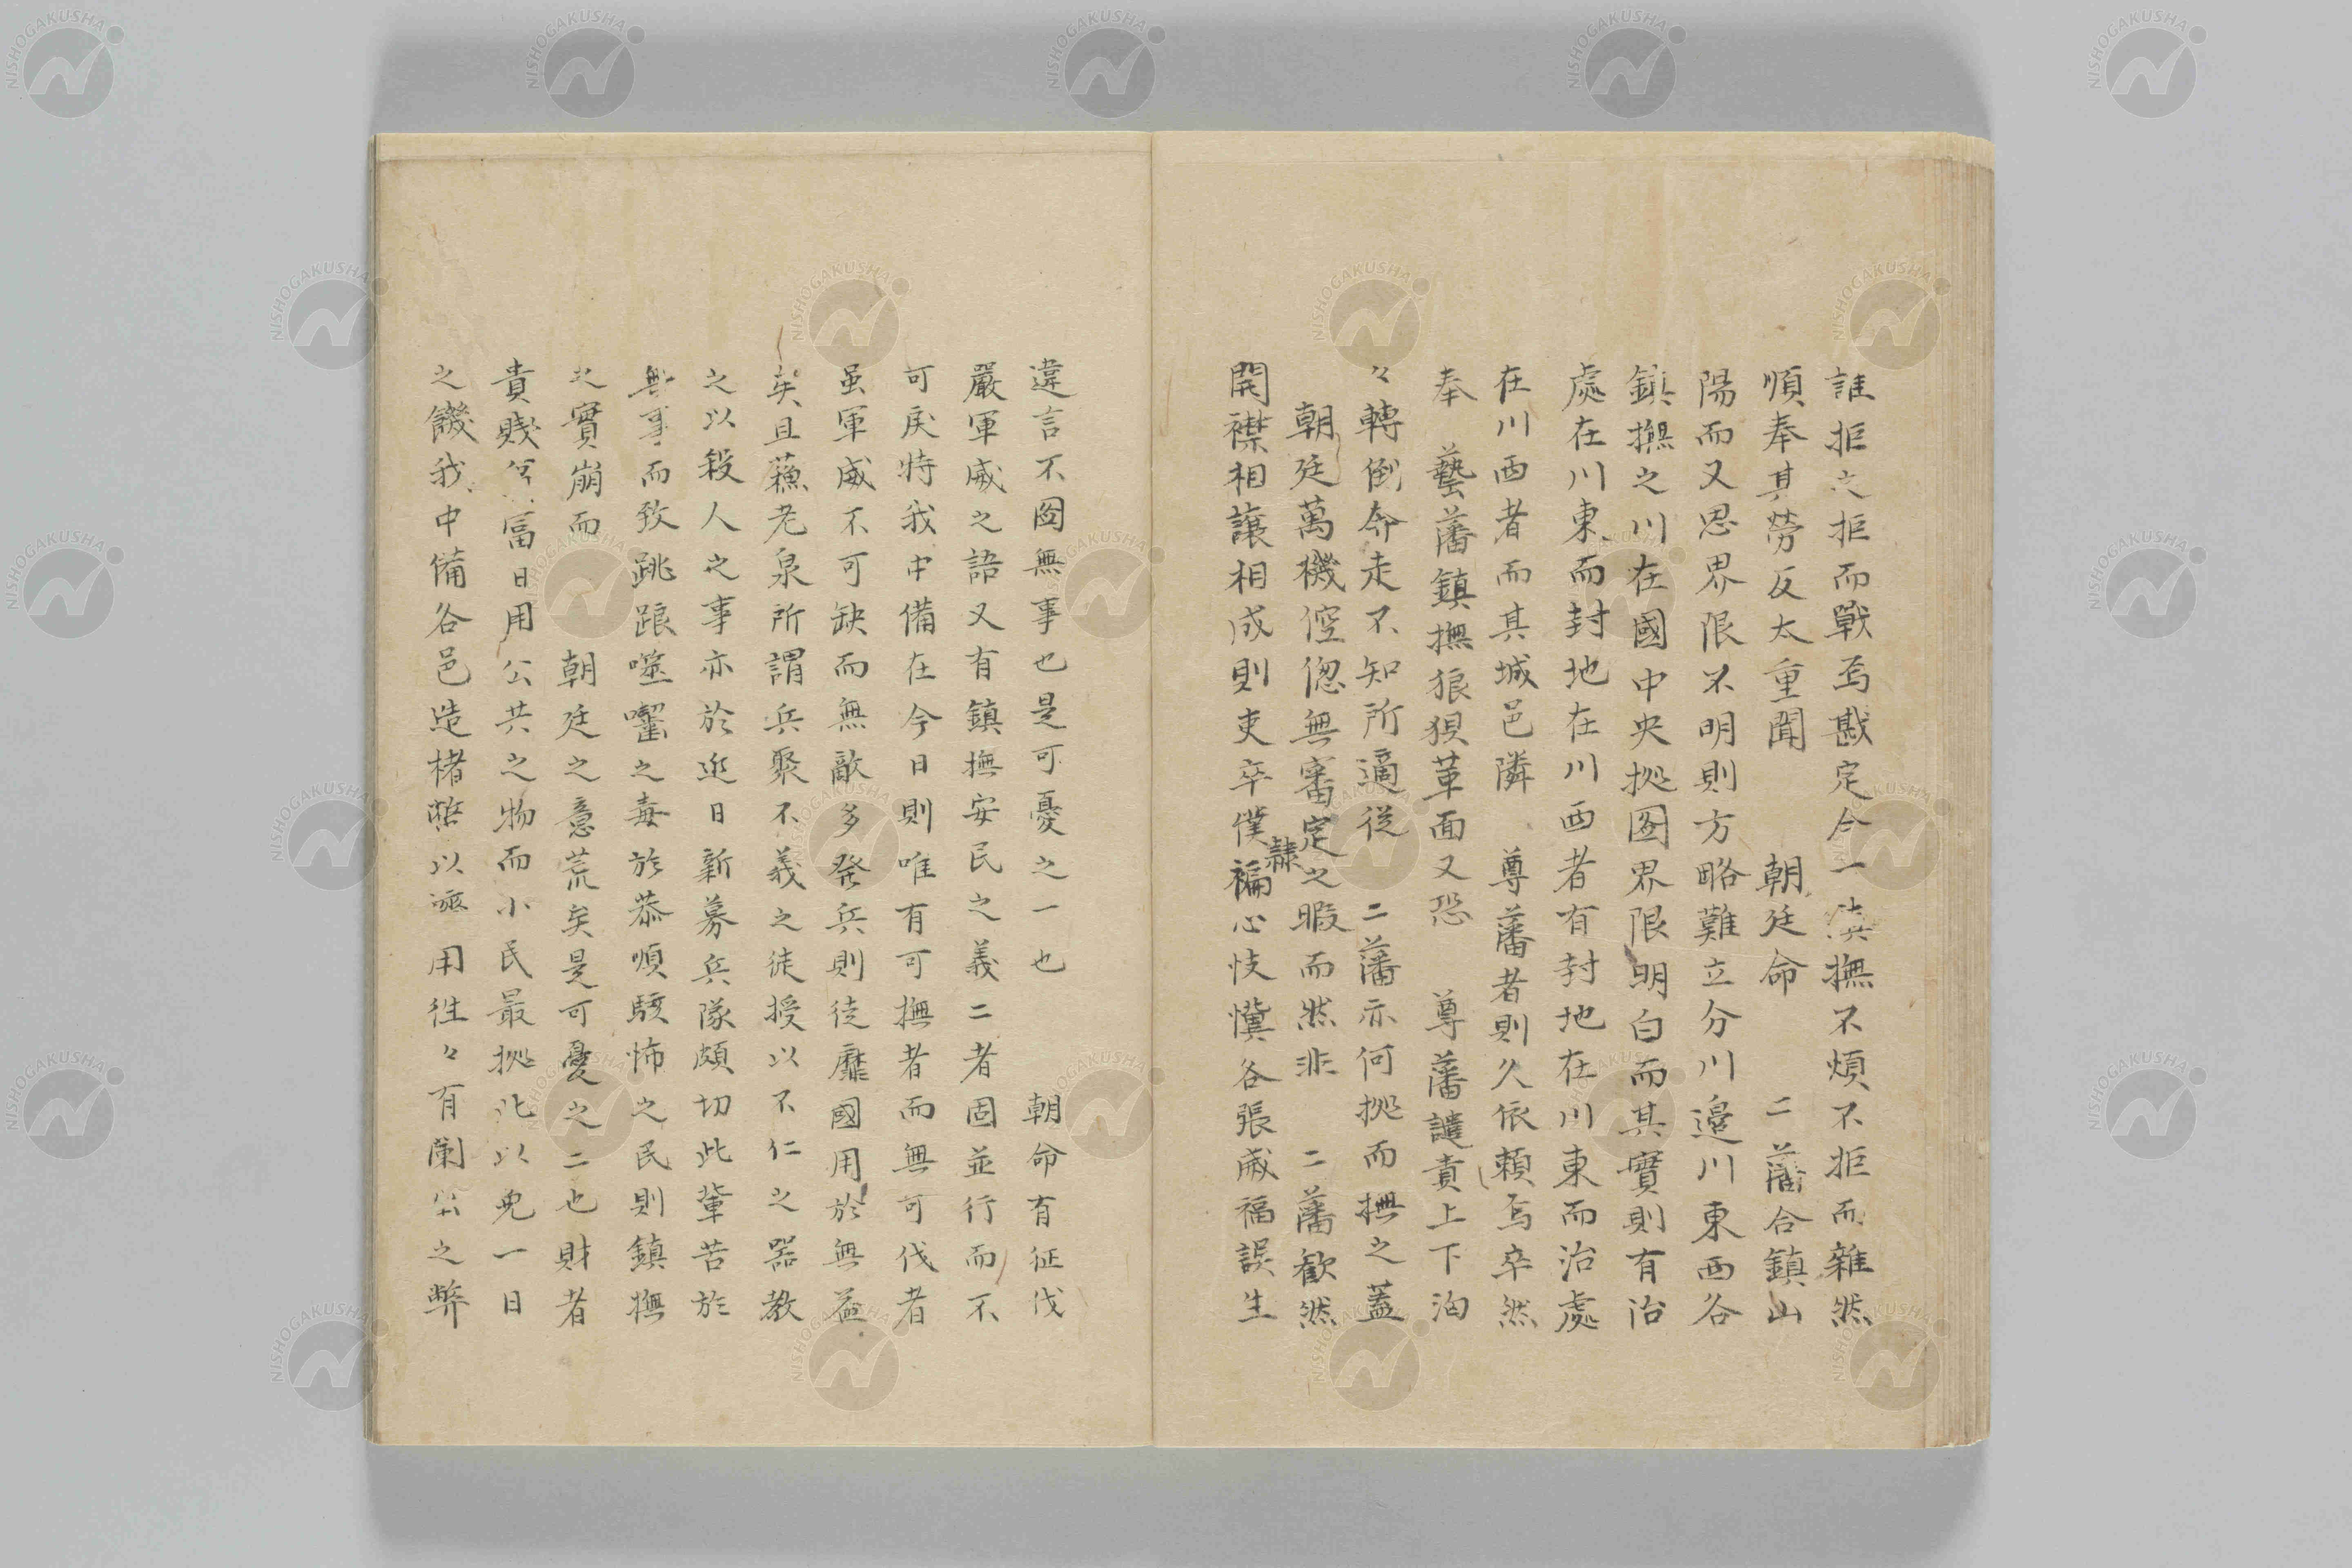 誰拒之拒而戰焉戡定今一鎮撫不煩不拒而雜然
順奉其勞反太重聞　朝廷命　二藩合鎮山
陽而又思界限不明則方略難立分川邉川東西各
鎮撫之川在國中央拠图界限明白而其實則有治
處在川東而封地在川西者有封地在川東而治處
在川西者而其城邑隣　尊藩者則久依頼焉卒然
奉　藝藩鎮撫狼狽革面又恐　尊藩譴責上下洶
々轉倒奔走不知所適従　二藩亦何拠而撫之蓋
朝廷萬機倥偬無審定之暇而然非　二藩歓然
開襟相譲相成則吏卒僕隷褊心忮懻各張威福誤生
違言不図無事也是可憂之一也　朝命有征伐
嚴軍威之語又有鎮撫安民之義二者固並行而不
可戻特我中備在今日則唯有可撫者而無可伐者
虽軍威不可缺而無敵多発兵則徒靡國用於無益
矣且蘓老泉所謂兵聚不義之徒授以不仁之器教
之以殺人之事亦於近日新募兵隊頗切此輩苦於
無事而致跳踉噬囓之毒於恭順駭怖之民則鎮撫
之實崩而　朝廷之意荒矣是可憂之二也財者
貴賤貧冨日用公共之物而小民最拠此以免一日
之饑我中備各邑造楮幣以通用徃々有闌出之弊